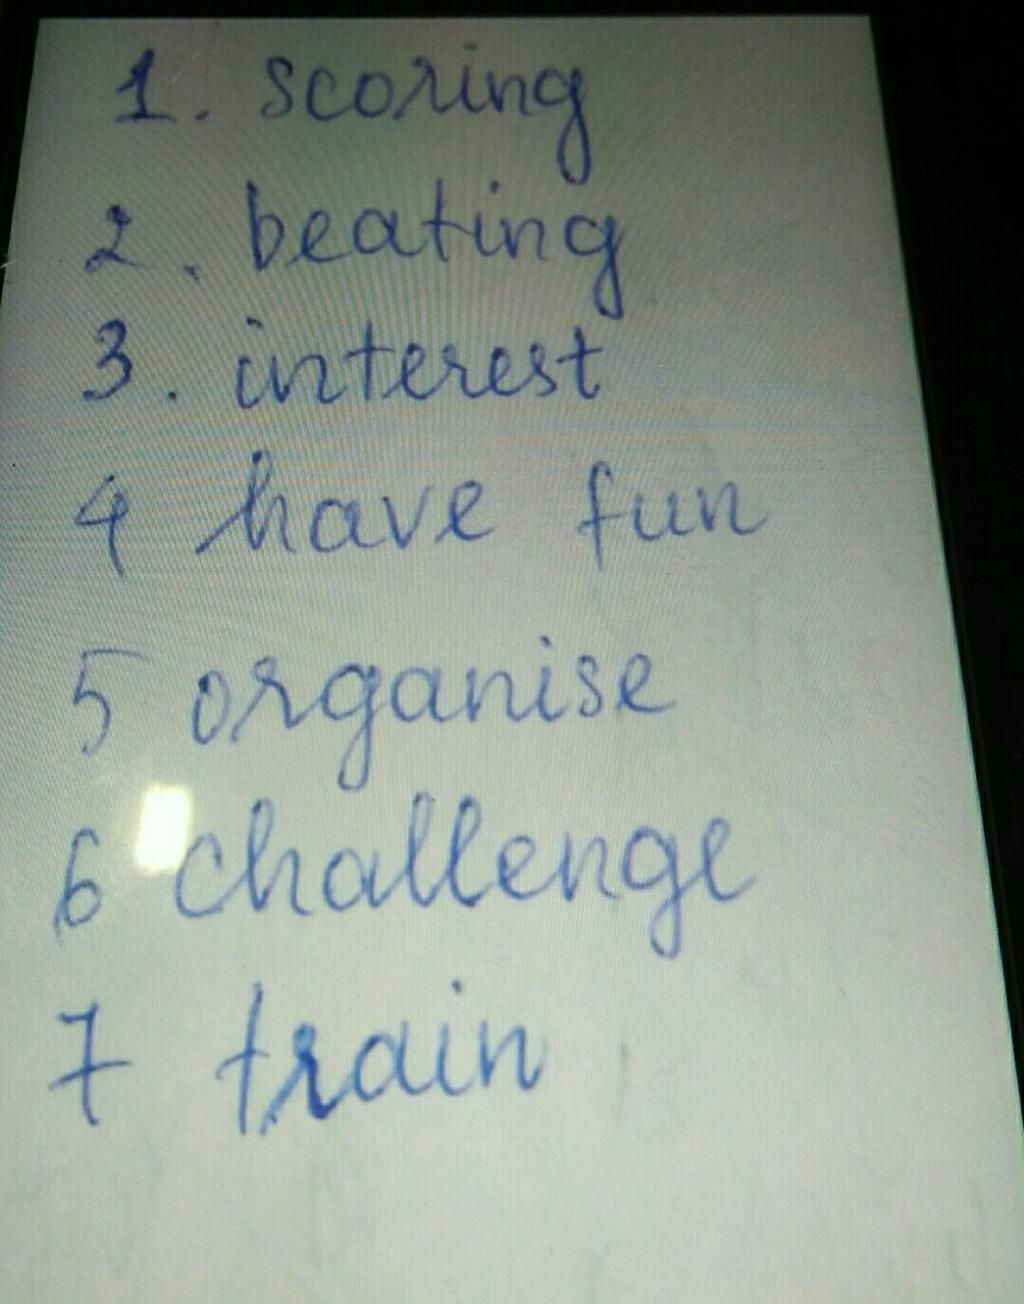 1. scoring
2. beating
3. interest
4 have fun
5 organise
6 challenge
7 train